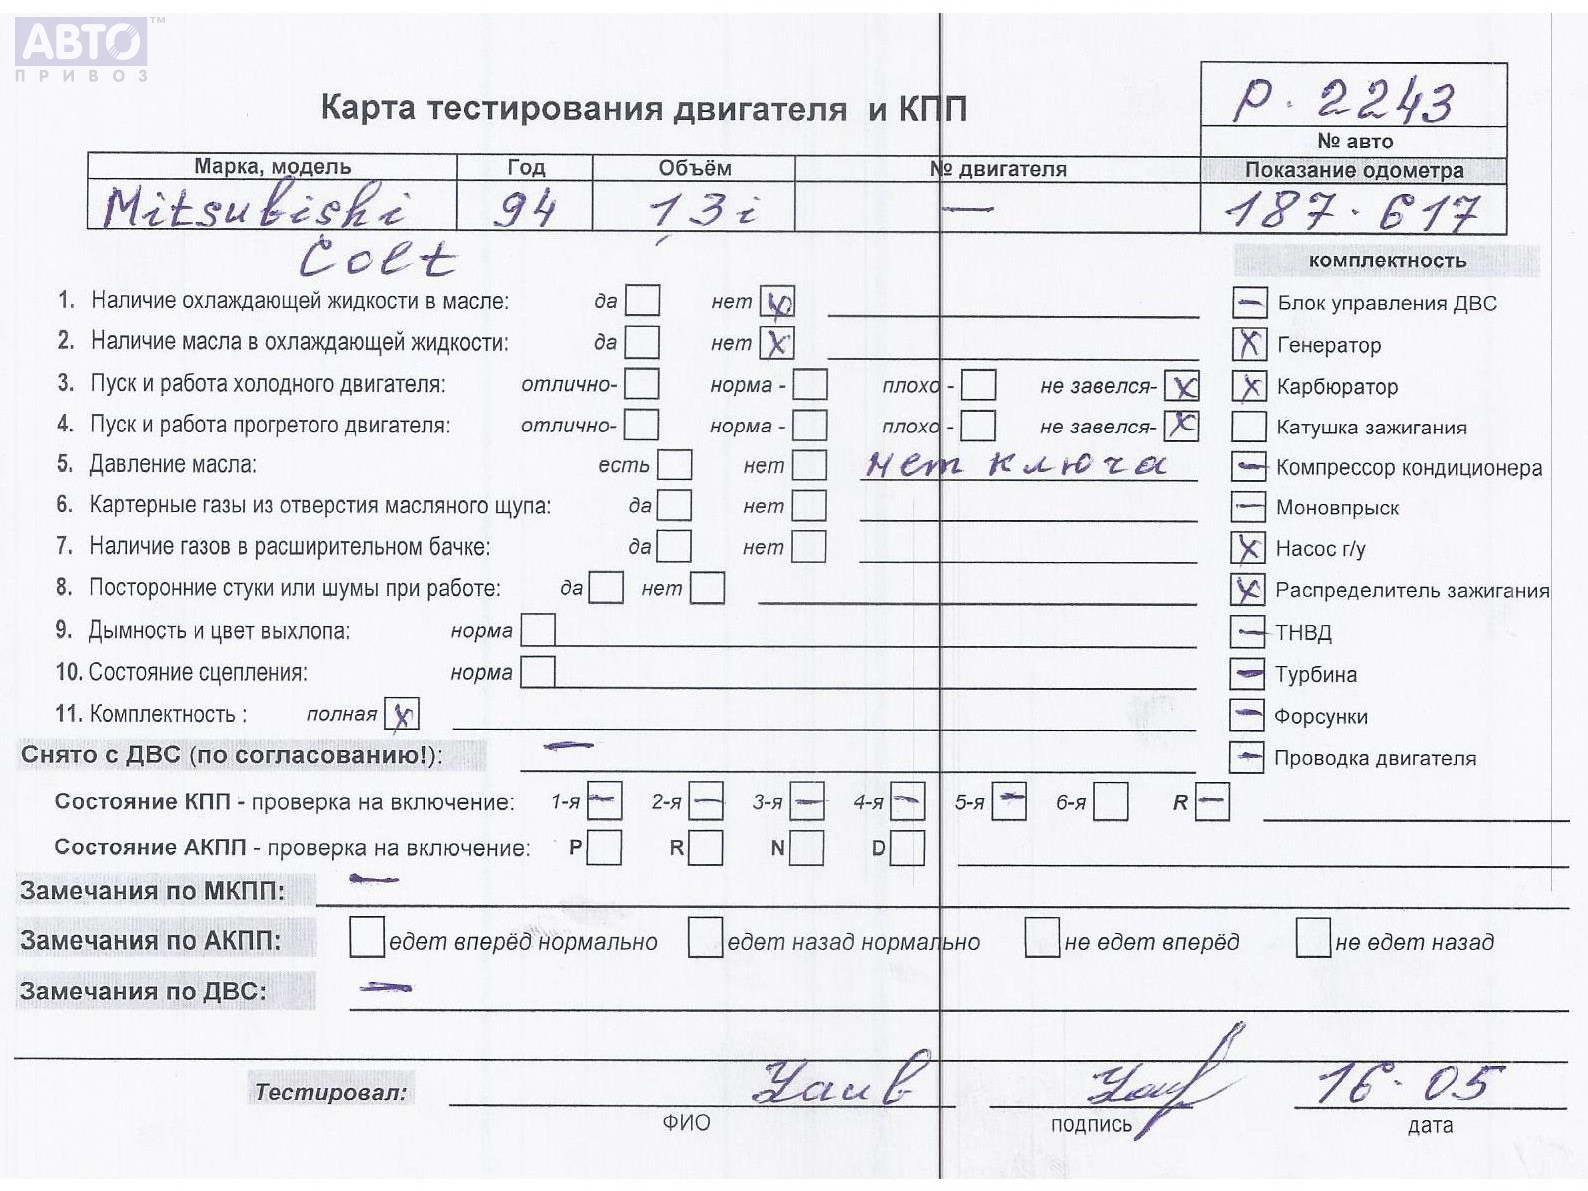 АВТО™
ПРИВОЗ
Карта тестирования двигателя и КПП
Р. 2243
№ авто
Марка, модель Год Объём № двигателя Показание одометра
Mitsubishi 94 1,3i — 187.617
Colt
комплектность
1. Наличие охлаждающей жидкости в масле: да нет X
Блок управления ДВС
2. Наличие масла в охлаждающей жидкости: да нет X
Генератор X
3. Пуск и работа холодного двигателя: отлично- норма - плохо - не завелся- X
Карбюратор X
4. Пуск и работа прогретого двигателя: отлично- норма - плохо - не завелся- X
Катушка зажигания
5. Давление масла: есть нет нет ключа
Компрессор кондиционера
6. Картерные газы из отверстия масляного щупа: да нет
Моновпрыск
7. Наличие газов в расширительном бачке: да нет
Насос г/у X
8. Посторонние стуки или шумы при работе: да нет
Распределитель зажигания X
9. Дымность и цвет выхлопа: норма
ТНВД
10. Состояние сцепления: норма
Турбина
11. Комплектность : полная X
Форсунки
Снято с ДВС (по согласованию!): —
Проводка двигателя
Состояние КПП - проверка на включение: 1-я — 2-я — 3-я — 4-я — 5-я — 6-я R —
Состояние АКПП - проверка на включение: P R N D
Замечания по МКПП: —
Замечания по АКПП: едет вперёд нормально едет назад нормально не едет вперёд не едет назад
Замечания по ДВС: —
Тестировал: 16.05
ФИО подпись дата